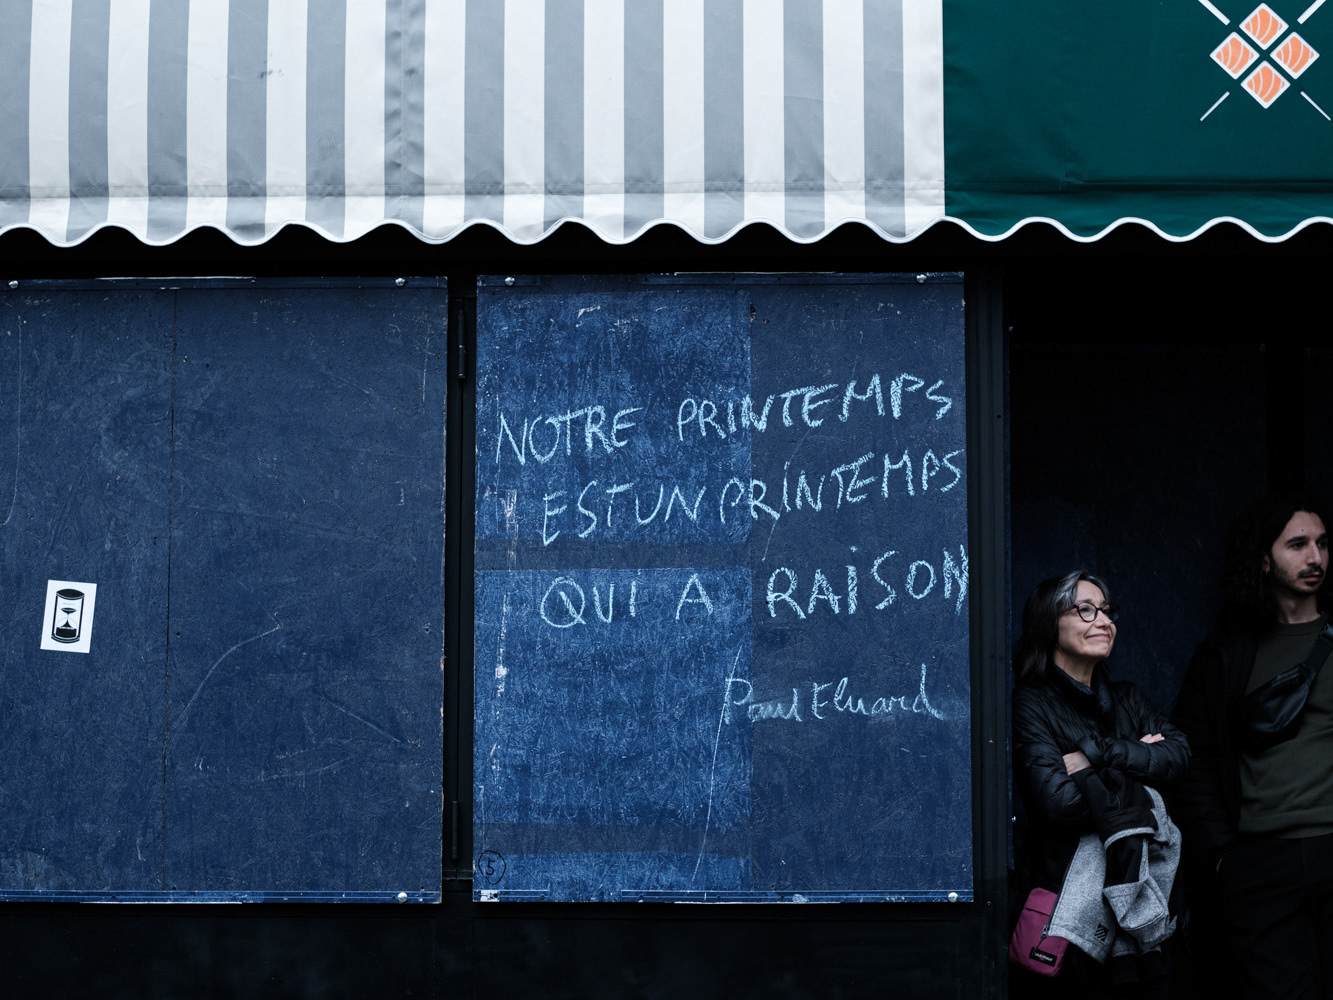 NOTRE PRINTEMPS
EST UN PRINTEMPS
QUI A RAISON
Paul Eluard
5